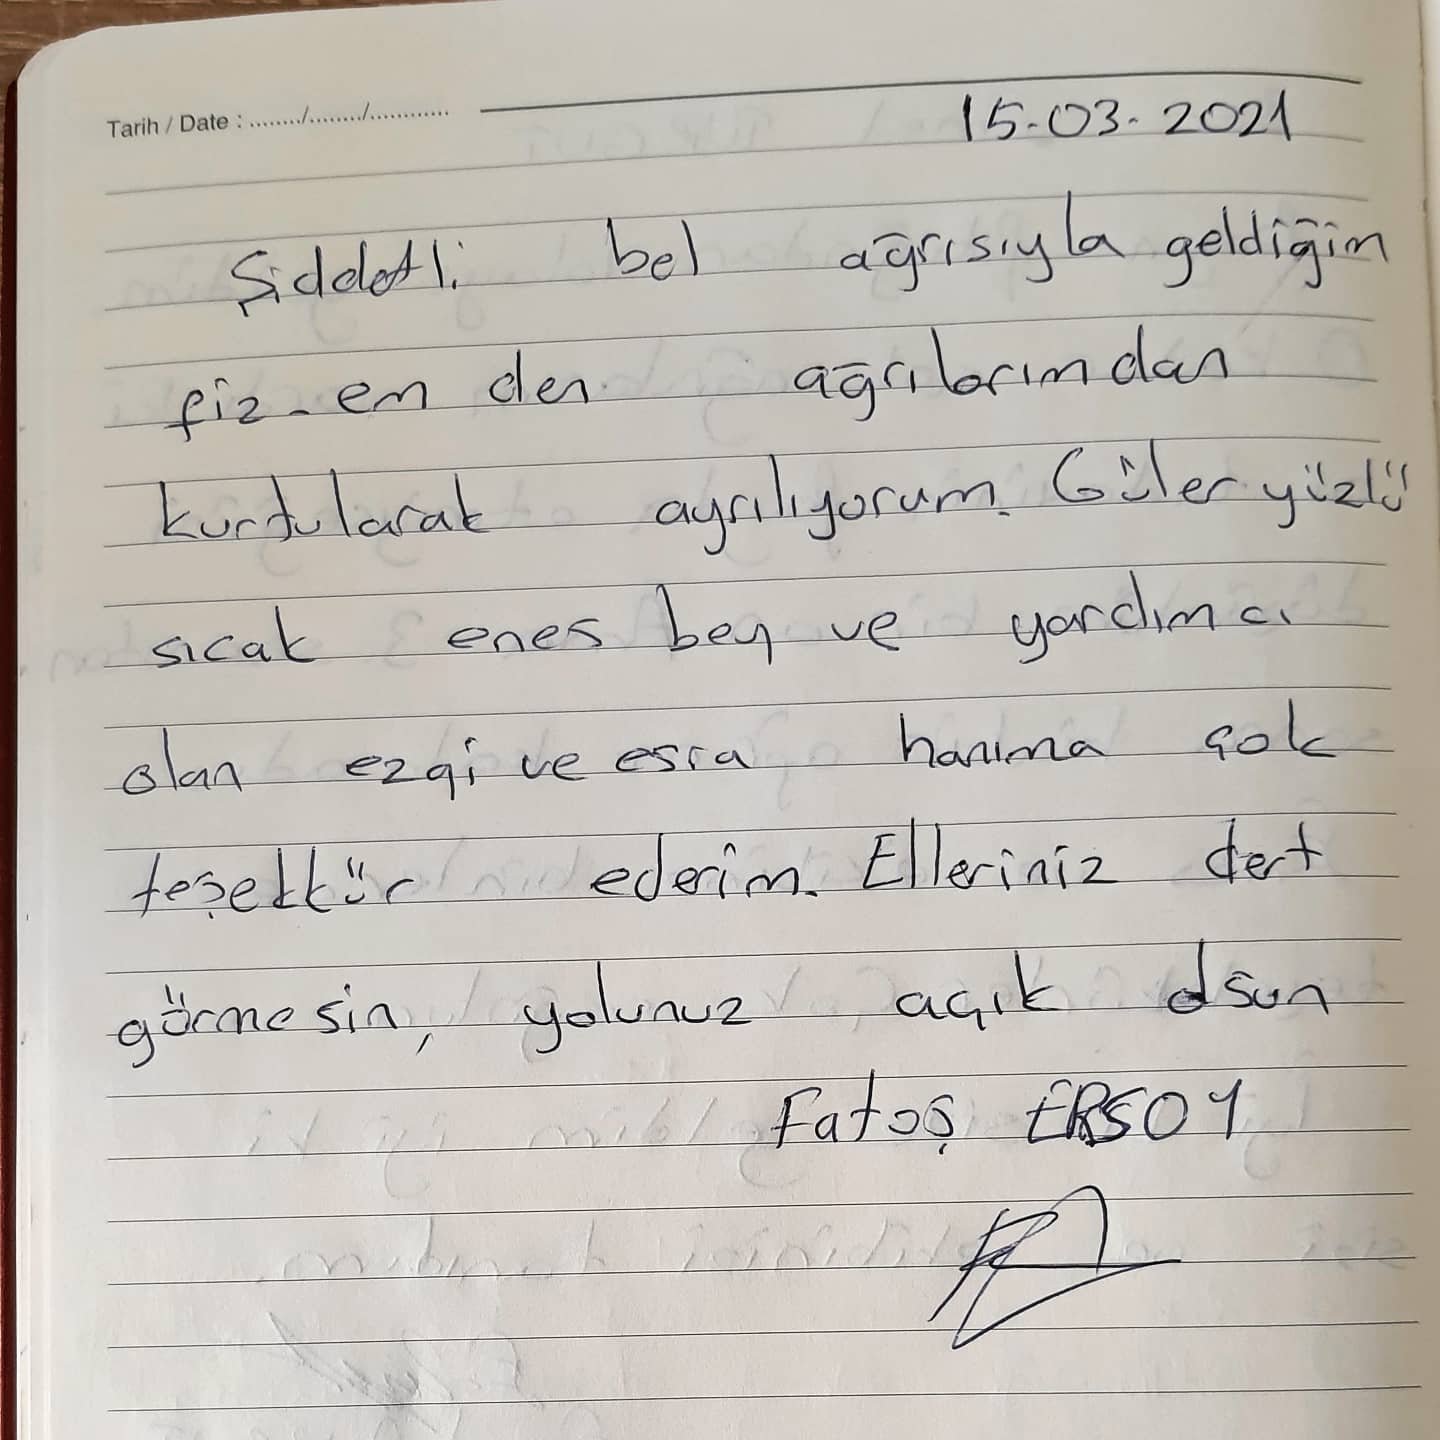 Tarih / Date : ......../......../............
15-03-2021
Şiddetli bel ağrısıyla geldiğim
fiz-em den ağrılarımdan
kurtularak ayrılıyorum. Güler yüzlü
sıcak enes bey ve yardımcı
olan ezgi ve esra hanıma çok
teşekkür ederim. Elleriniz dert
görmesin, yolunuz açık olsun
Fatoş ERSOY